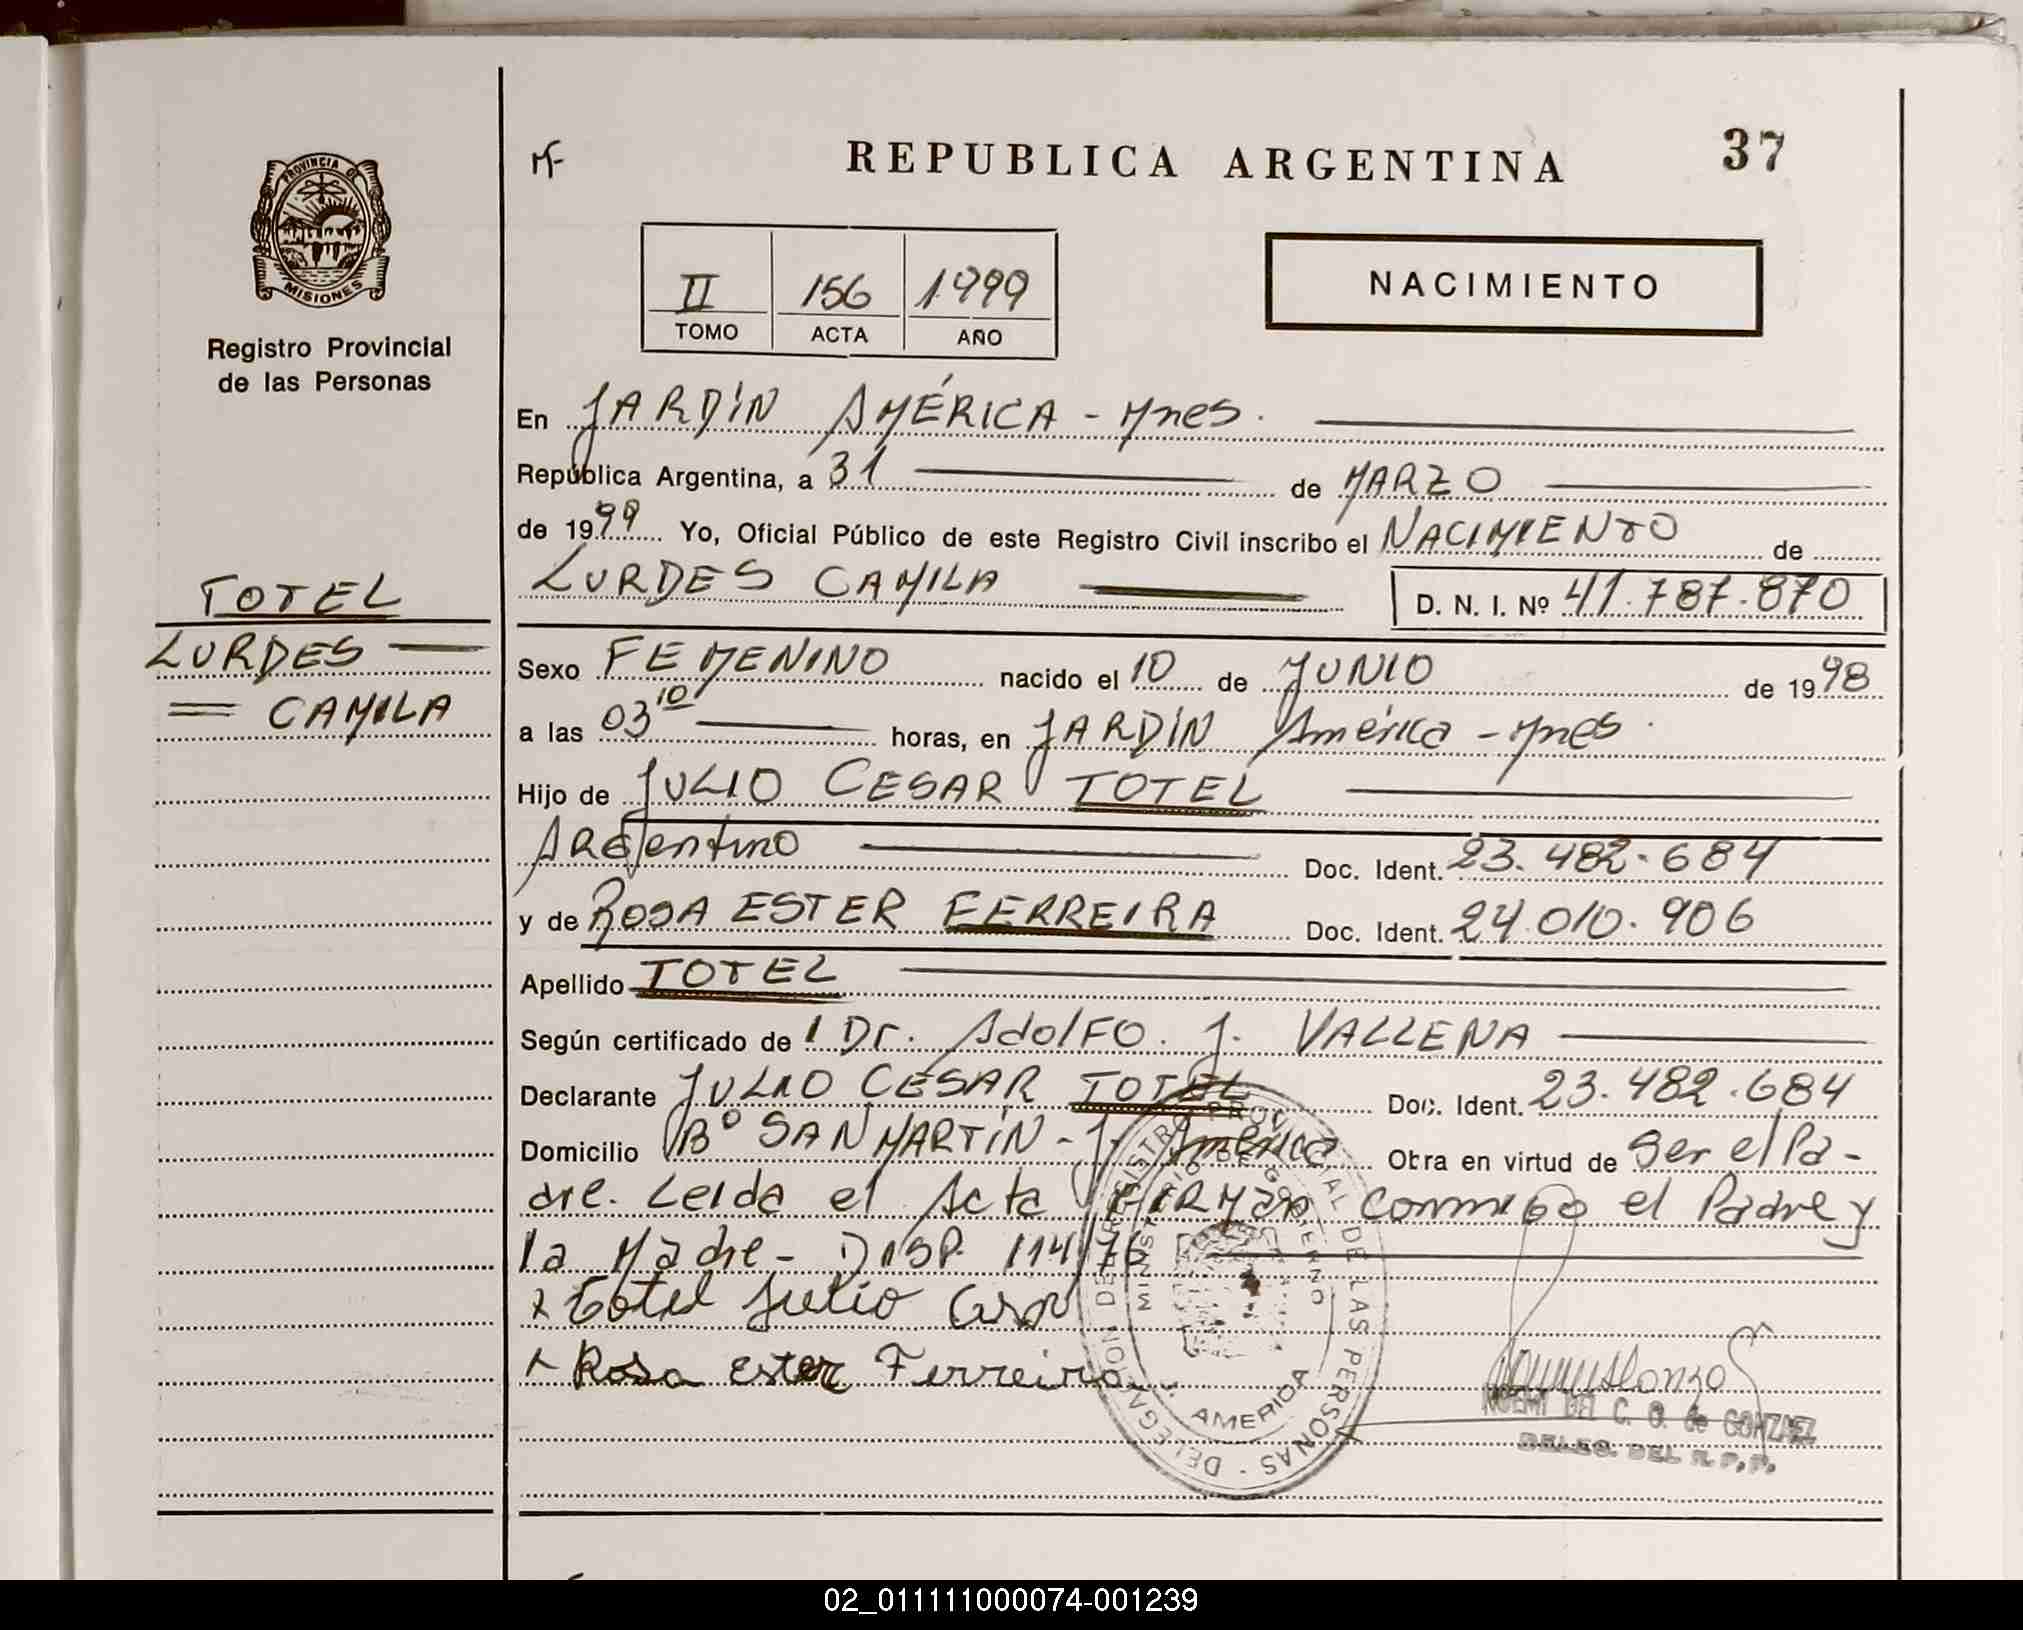 PROVINCIA DE
MISIONES
Registro Provincial
de las Personas
TOTEL
LURDES
CAMILA
REPUBLICA ARGENTINA
37
II 156 1999
TOMO ACTA AÑO
NACIMIENTO
En JARDÍN AMÉRICA - Mnes.
República Argentina, a 31 de MARZO
de 1999 Yo, Oficial Público de este Registro Civil inscribo el NACIMIENTO de
LURDES CAMILA D. N. I. Nº 41.787.870
Sexo FEMENINO nacido el 10 de JUNIO de 1998
a las 03 10 horas, en JARDÍN América - Mnes.
Hijo de JULIO CESAR TOTEL
Argentino Doc. Ident. 23.482.684
y de ROSA ESTER FERREIRA Doc. Ident. 24.010.906
Apellido TOTEL
Según certificado de l Dr. Adolfo. J. VALLENA
Declarante JULIO CESAR TOTEL Doc. Ident. 23.482.684
Domicilio Bº SAN MARTÍN - J. América Obra en virtud de Ser el Pa-
dre. Leida el Acta FIRMAN conmigo el Padre y
la Madre - DISP. 114/76
x Totel Julio Cesar
x Rosa Ester Ferreira
REGISTRO PROVINCIAL DE LAS PERSONAS - DELEGACION
MINISTERIO DE GOBIERNO
AMERICA
NOEMI DEL C. O. de GONZALEZ
DELEG. DEL R. P. P.
02_011111000074-001239